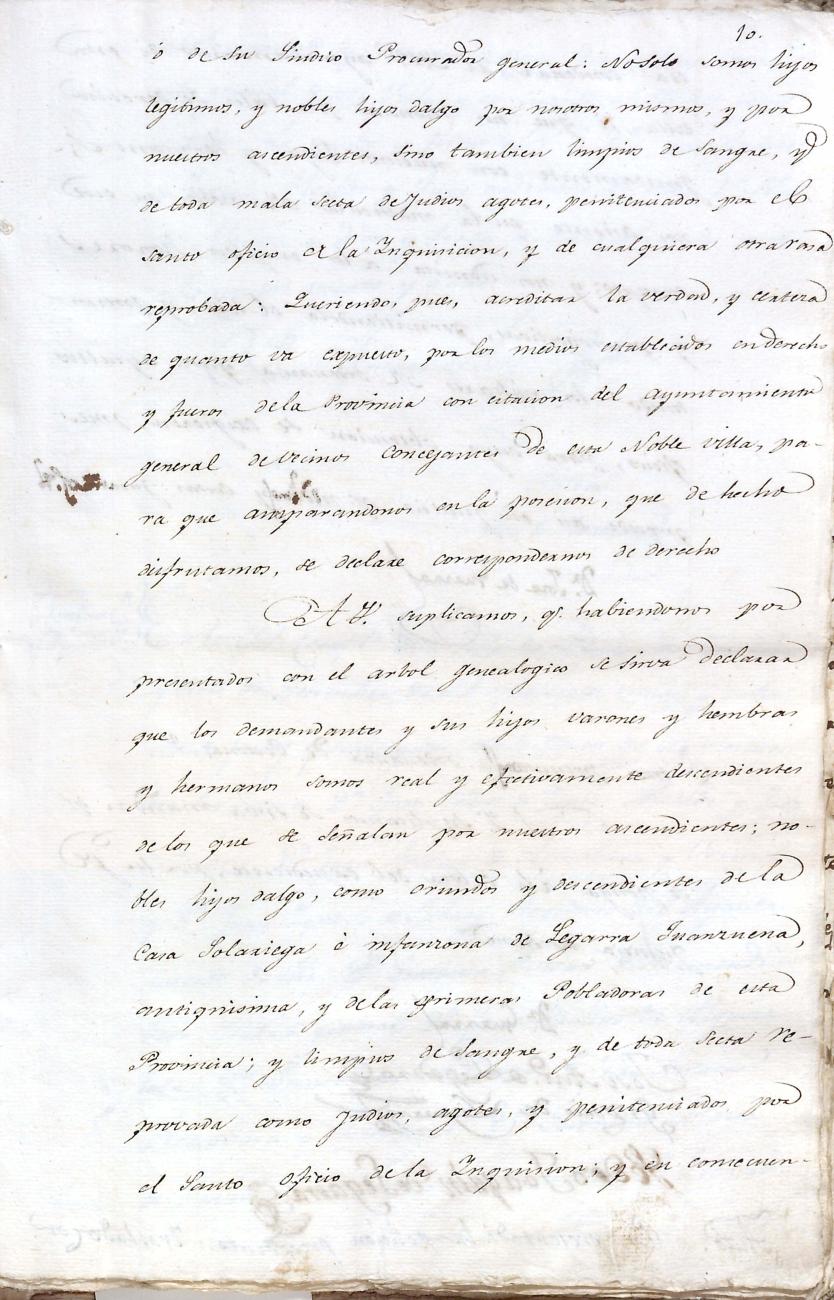 10.
ò de su Sindico Procurador general: No solo somos hijos
legitimos, y nobles hijos dalgo por nosotros mismos, y por
nuestros ascendientes, sino tambien limpios de sangre, y
de toda mala secta de Judios agotes, penitenciados por el
santo oficio de la Inquisicion, y de cualquiera otra raza
reprobada: Queriendo, pues, acreditar la verdad, y certeza
de quanto va expuesto, por los medios establecidos en derecho
y fueros de la Provincia con citacion del ayuntamiento
general de vecinos concejantes de esta Noble villa, pa-
ra que amparandonos en la posesion, que de hecho
disfrutamos, se declare correspondernos de derecho
A V. suplicamos, q. habiendonos por
presentados con el arbol genealogico se sirva declarar
que los demandantes y sus hijos varones y hembras
y hermanos somos real y efectivamente descendientes
de los que se señalan por nuestros ascendientes; no-
bles hijos dalgo, como oriundos y descendientes de la
Casa Solariega è infanzona de Legarra Juanzuena,
antiquisima, y de las primeras Pobladoras de esta
Provincia; y limpios de sangre, y de toda secta re-
provada como Judios, agotes, y penitenciados por
el Santo Oficio de la Inquision; y en consecuen-